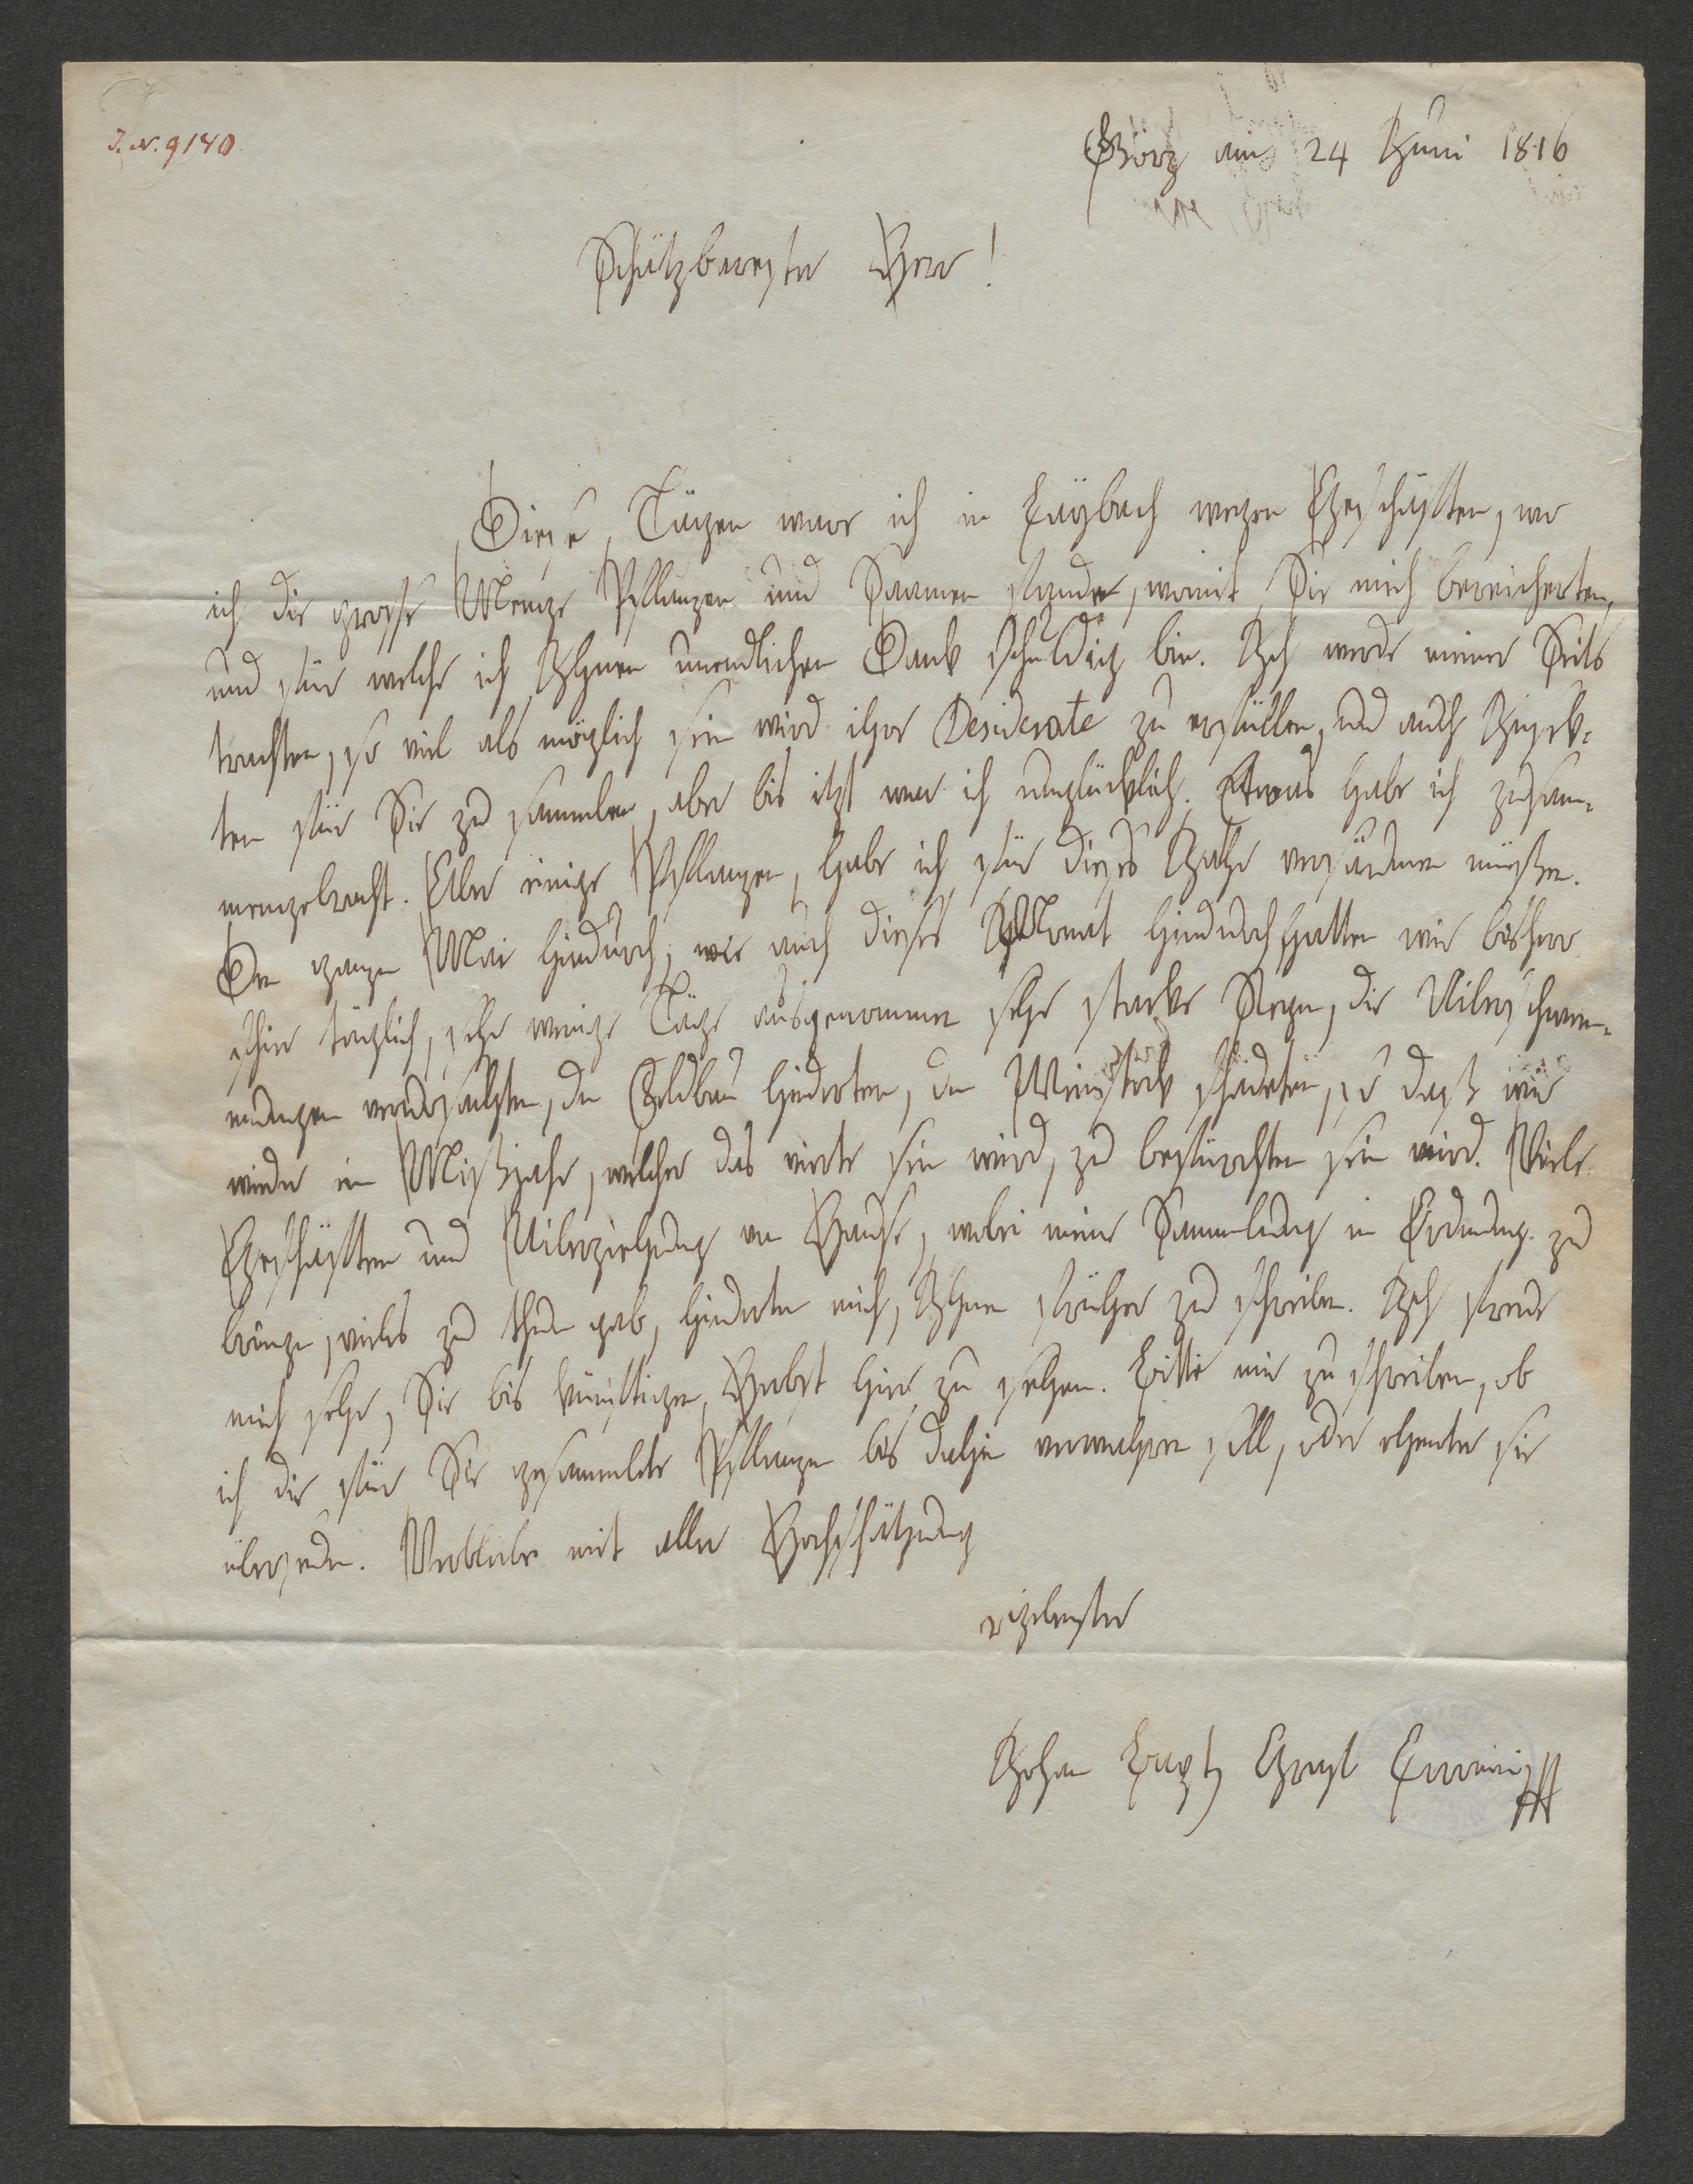 J. N. 9140
Görz am 24 Juni 1816
Schätzbarester Herr!
Diese Tägen waar ich in Laybach wegen Geschäften, wo
ich die grosse Menge Pflanzen und Saamen fande, womit Sie mich bereicherten,
und für welche ich Ihnen unendlichen Dank schuldig bin. Ich werde meiner Seits
trachten, so viel als möglich sein wird ihre Desiderate zu erfüllen, und auch Insek-
ten für Sie zu sammlen, aber bis itzt war ich unglücklich. Etwas habe ich zusam-
mengebracht. Aber einige Pflanzen, habe ich für dieses Jahr versäumen müssen.
Den ganzen Mai hindurch, wie auch dieses Monat hindurch hatten wir bisher
schier täglich, sehr wenige Täge ausgenommen sehr starke Regen, die Uiberschwem-
mungen verursachten, den Feldbau hinderten, dem Weinstock schadeten, so daß wir
wieder ein Mißjahr, welcher das vierte sein wird, zu befürchten sein wird. Viele
Geschäften und Uiberziehung von Hause, wobei meine Sammlung in Ordnung zu
bringen, vieles zu thun gab, hinderten mich, Ihnen früher zu schreiben. Ich freue
mich sehr, Sie bis künftigen Herbst hier zu sehen. Bitte mir zu schreiben, ob
ich die für Sie gesammelte Pflanzen bis dahin verwahren soll, oder ehender sie
übersenden. Verbleibe mit aller Hochschätzung
ergebenster
Johan Bapt Graf Coronini